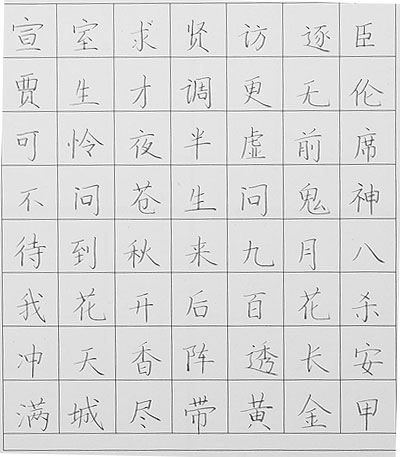 宣室求贤访逐臣
贾生才调更无伦
可怜夜半虚前席
不问苍生问鬼神
待到秋来九月八
我花开后百花杀
冲天香阵透长安
满城尽带黄金甲